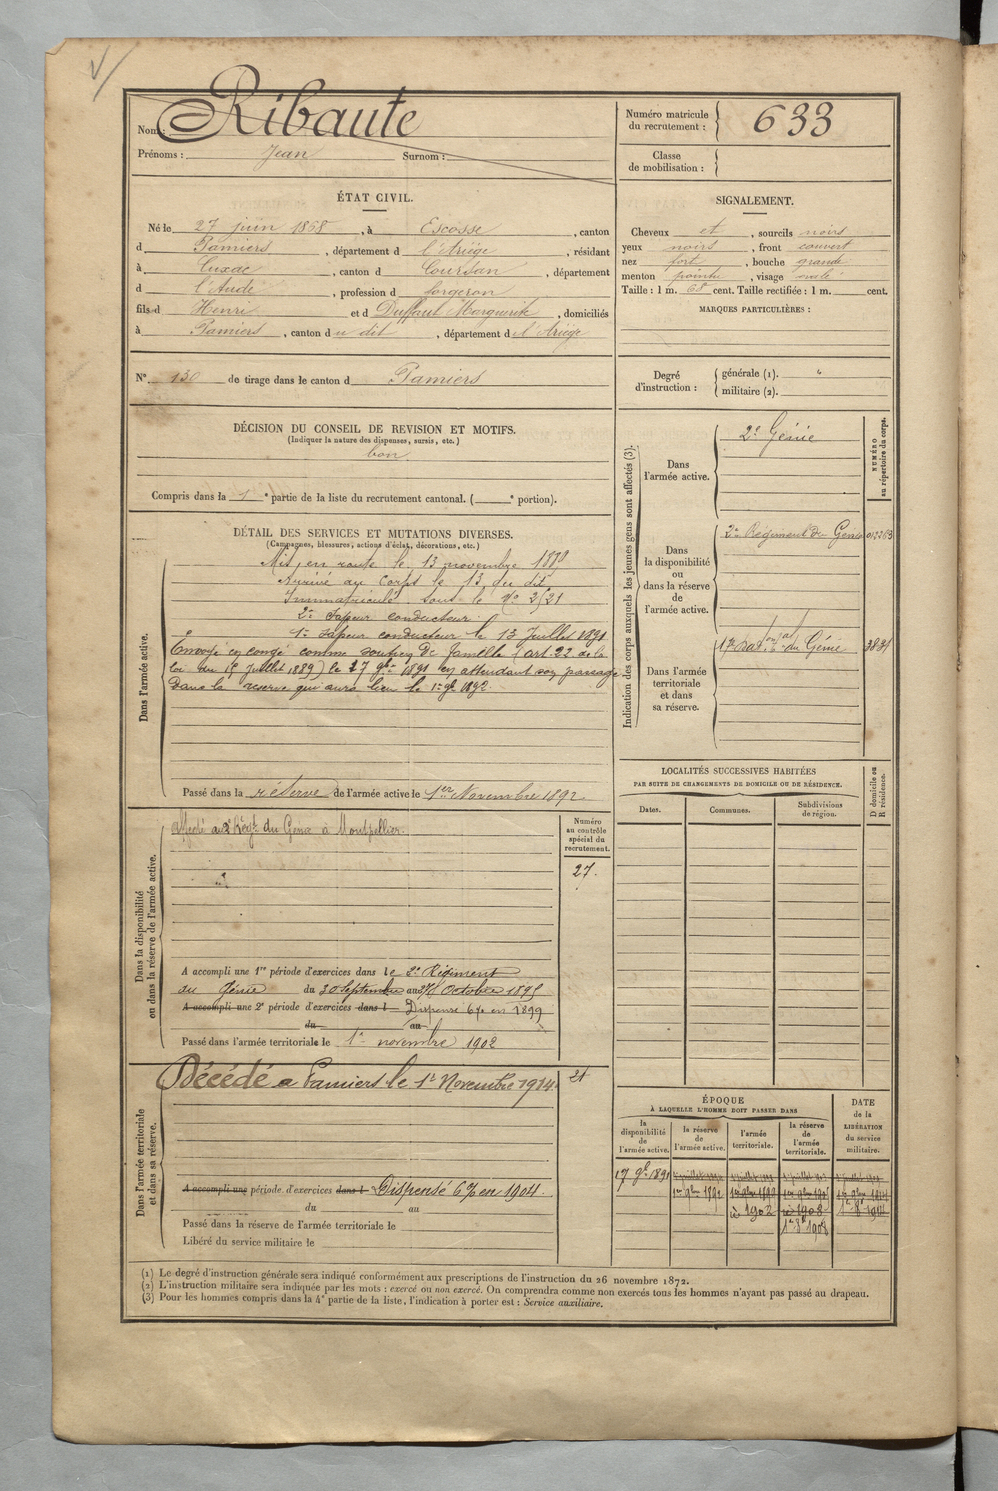 Nom : Ribaute
Prénoms : Jean Surnom :
Numéro matricule du recrutement : 633
Classe de mobilisation :
ÉTAT CIVIL.
Né le 27 juin 1868, à Escosse, canton
d Pamiers, département d l'Ariège, résidant
à Cuxac, canton d Coursan, département
d l'Aude, profession d forgeron
fils d Henri et d Duffaut Marguerite, domiciliés
à Pamiers, canton d u dit, département d l'Ariège
N° 130 de tirage dans le canton d Pamiers
SIGNALEMENT.
Cheveux et, sourcils noirs
yeux noirs, front couvert
nez fort, bouche grande
menton pointu, visage ovale
Taille : 1 m. 68 cent. Taille rectifiée : 1 m. cent.
MARQUES PARTICULIÈRES :
Degré d'instruction : générale (1). "
militaire (2).
DÉCISION DU CONSEIL DE REVISION ET MOTIFS.
(Indiquer la nature des dispenses, sursis, etc.)
bon
Compris dans la 1e partie de la liste du recrutement cantonal. ( e portion).
DÉTAIL DES SERVICES ET MUTATIONS DIVERSES.
(Campagnes, blessures, actions d'éclat, décorations, etc.)
Dans l'armée active.
Mis en route le 13 novembre 1889
Arrivé au corps le 13 du dit
Immatriculé sous le No 2521
2e Sapeur conducteur
1er Sapeur conducteur le 13 Juillet 1891
Envoyé en congé comme soutien de famille (art. 22 de la
loi du 15 Juillet 1889) le 27 9bre 1891 en attendant son passage
dans la réserve qui aura lieu le 1er 9bre 1892
Passé dans la réserve de l'armée active le 1er Novembre 1892
Indication des corps auxquels les jeunes gens sont affectés (3).
NUMÉRO au répertoire du corps.
Dans l'armée active.
2e Génie
Dans la disponibilité ou dans la réserve de l'armée active.
2e Régiment du Génie
Dans l'armée territoriale et dans sa réserve.
du Génie
LOCALITÉS SUCCESSIVES HABITÉES
PAR SUITE DE CHANGEMENTS DE DOMICILE OU DE RÉSIDENCE.
Dates. Communes. Subdivisions de région. D domicile ou R résidence.
Dans la disponibilité ou dans la réserve de l'armée active.
Affecté au 2e Régt du Génie à Montpellier.
Numéro au contrôle spécial du recrutement.
27.
A accompli une 1re période d'exercices dans le 2e Régiment
du Génie du 30 Septembre au 27 Octobre 1895
A accompli une 2e période d'exercices dans l Dispensé 6% en 1899
du au
Passé dans l'armée territoriale le 1er novembre 1902
Dans l'armée territoriale et dans sa réserve.
Décédé a Pamiers le 1er Novembre 1914
21
A accompli une période d'exercices dans l Dispensé 6% en 1904.
du au
Passé dans la réserve de l'armée territoriale le
Libéré du service militaire le
ÉPOQUE
À LAQUELLE L'HOMME DOIT PASSER DANS
la disponibilité de l'armée active. la réserve de l'armée active. l'armée territoriale. la réserve de l'armée territoriale.
DATE de la LIBÉRATION du service militaire.
1er 9bre 1892
1902 1908
(1) Le degré d'instruction générale sera indiqué conformément aux prescriptions de l'instruction du 26 novembre 1872.
(2) L'instruction militaire sera indiquée par les mots : exercé ou non exercé. On comprendra comme non exercés tous les hommes n'ayant pas passé au drapeau.
(3) Pour les hommes compris dans la 4e partie de la liste, l'indication à porter est : Service auxiliaire.